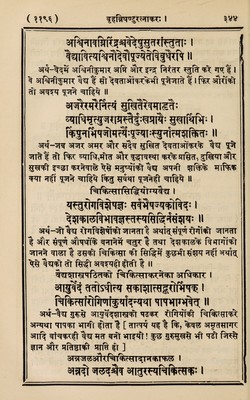 ( ११९६ ) बृहन्निघण्टुरत्नाकरः । ३४४
अश्विनावग्निरिंद्रश्ववेदेषुसुतरांस्तुताः ।
वैद्यावित्यश्विनौदेवौपूज्येतेविबुधैरपि ॥
अर्थ-वेदमें अश्विनीकुमार अग्नि और इन्द्र निरंतर स्तुति करे गए हैं ।
वे अश्विनीकुमार वैद्य हैं सो देवताओंकरकेभी पूजे जाते हैं। फिर औरोंकी
तो अवश्य पूजने चाहिये ॥
अजरैरमरैर्नित्यं सुखितैरेवमादृतैः ।
व्याधिमृत्युजराग्रस्तैर्दुःखप्रायैः सुखार्थिभिः ।
किंपुनर्भिषजोमर्त्यैःपूज्याःस्युर्नात्मशक्तितः ॥
अर्थ-जब अजर अमर और सदैव सुखित देवताओंकरके वैद्य पूजे
जाते हैं तो फिर व्याधि,मौत और वृद्धावस्था करके ग्रसित, दुखिया और
सुखकी इच्छा करनेवाले ऐसे मनुष्योंको वैद्य अपनी शक्तिके माफिक
क्या नहीं पूजने चाहिये किंतु सर्वथा पूजनेही चाहिये ॥
चिकित्सासिद्धियोग्यवैद्य.
यस्तुरोगविशेषज्ञः सर्वभैषज्यकोविदः ।
देशकालविभावज्ञस्तस्यसिद्धिर्नसंशयः ॥
अर्थ-जो वैद्य रोगविशेषोंको जानता है अर्थात् संपूर्ण रोगोंको जानता
है और संपूर्ण औषधोंके बनानेमें चतुर है तथा देशकालके विभागोंको
जानने वाला है उसकी चिकित्सा की सिद्धिमें कुछभी संशय नहीं अर्थात्
ऐसे वैद्यको तो सिद्धी अवश्यही होती है ॥
वैद्यशास्त्रपठितको चिकित्साकरनेका अधिकार.
आयुर्वेदं ततोधीत्य सकाशात्सद्गुरोर्भिषक् ।
चिकित्सांरोगिणांकुर्यादन्यथा पापभाग्भवेत् ॥
अर्थ-वैद्य गुरूसे आयुर्वेदशास्त्रको पठकर रोगियोंकी चिकित्साकरे
अन्यथा पापका भागी होता है [ तात्पर्य यह है कि, केवल अमृतसागर
आदि वांचकरही वैद्य मत बनी भाइयो ! कुछ गुरुमुखसे भी पठो जिस्से
ज्ञान और प्रतिष्ठाकी प्राप्ति हो ।
अन्नजलऔरचिकित्सादानकाफल.
अन्नदो जलदश्चैव आतुरस्यचिकित्सकः ।